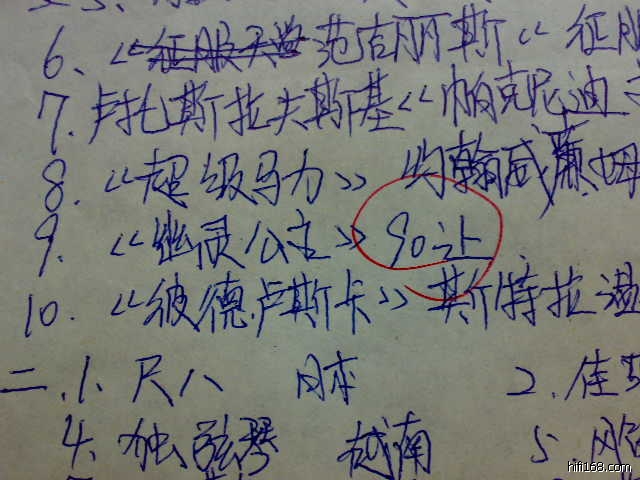 6、《征服天堂 范吉丽斯《征服
7.卢托斯拉夫斯基《帕克尼迪
8.《超级马力》约翰威廉姆
9.《幽灵公主》久让
10.《彼德.卢斯卡》斯特拉温
二.1、尺八 日本 2.佳
4、独弦琴 越南 5.
hifi168.com